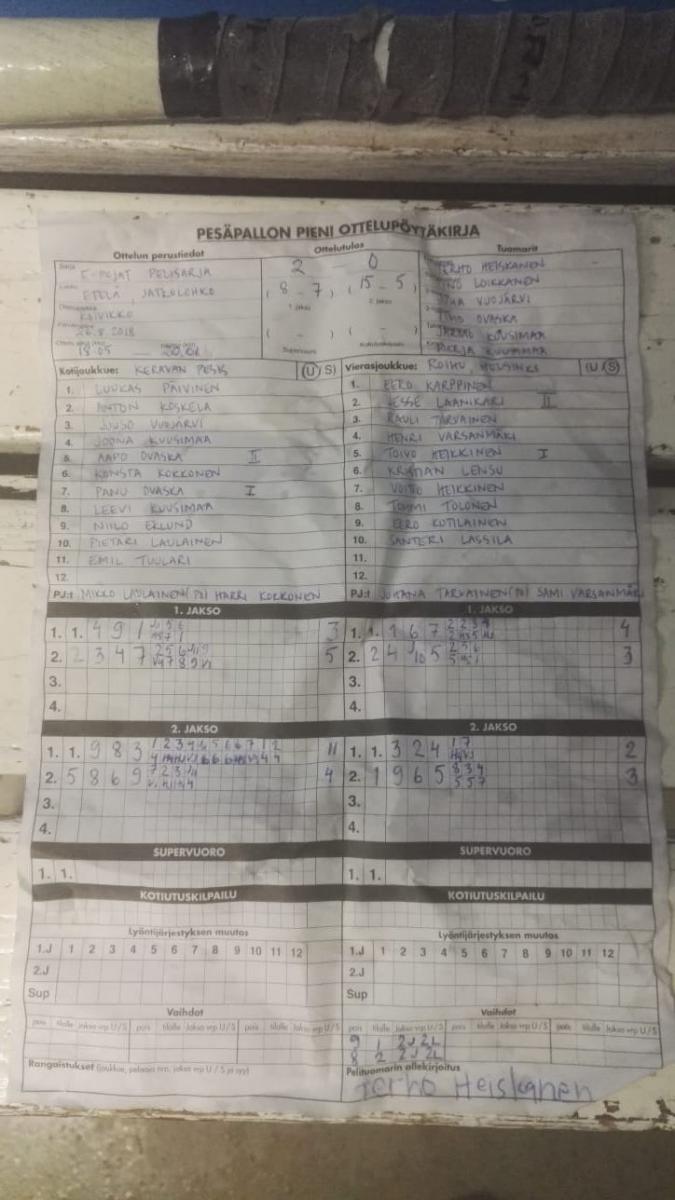 PESÄPALLON PIENI OTTELUPÖYTÄKIRJA
Ottelun perustiedot Ottelutulos Tuomarit
Sarja E-POJAT PELISARJA
ETELÄ, JATKOLOHKO
KOIVIKKO
26.8.2018
18.05
2 0
( 8 - 7 ) ( 15 - 5 )
1. jakso 2. jakso
( - ) ( - )
Supervuoro Kotiutuskilpailu
TERHO HEISKANEN
LOIKKANEN
JUHA VUOJÄRVI
TIMO OVASKA
JARMO KUUSIMAA
KUUSIMAA
Kotijoukkue: KERAVAN PESIS (U/S)
1. LUUKAS PÄIVINEN
2. ANTON KOSKELA
3. JUUSO VUOJÄRVI
4. JOONA KUUSIMAA
5. AAPO OVASKA II
6. KONSTA KOKKONEN
7. PANU OVASKA I
8. LEEVI KUUSIMAA
9. NIILO EKLUND
10. PIETARI LAULAINEN
11. EMIL TUULARI
12.
PJ:t MIKKO LAULAINEN (PJ) HARRI KOKKONEN
Vierasjoukkue: ROIHU, HELSINKI (U/S)
1. EERO KARPPINEN
2. JESSE LAANIKARI II
3. RAULI TARVAINEN
4. HENRI VARSANMÄKI
5. TOIVO HEIKKINEN I
6. KRISTIAN LENSU
7. VOITTO HEIKKINEN
8. TOMMI TOLONEN
9. EERO KOTILAINEN
10. SANTERI LASSILA
11.
12.
PJ:t JUHANA TARVAINEN (PJ) SAMI VARSANMÄKI
1. JAKSO
1. 1. 4 9 1 3
2. 2 3 4 7 5
3.
4.
1. JAKSO
1. 1. 1 6 7 4
2. 2 4 5 3
3.
4.
2. JAKSO
1. 1. 9 8 3 11
2. 5 8 6 9 4
3.
4.
2. JAKSO
1. 1. 3 2 4 2
2. 1 9 6 5 3
3.
4.
SUPERVUORO
1. 1.
SUPERVUORO
1. 1.
KOTIUTUSKILPAILU
KOTIUTUSKILPAILU
Lyöntijärjestyksen muutos
1.J 1 2 3 4 5 6 7 8 9 10 11 12
2.J
Sup
Lyöntijärjestyksen muutos
1.J 1 2 3 4 5 6 7 8 9 10 11 12
2.J
Sup
Vaihdot
pois tilalle Jakso vrp U/S pois tilalle Jakso vrp U/S pois tilalle Jakso vrp U/S
Rangaistukset (joukkue, pelaajan nro, jakso vrp U / S ja syy)
Vaihdot
pois tilalle Jakso vrp U/S pois tilalle Jakso vrp U/S pois tilalle Jakso vrp U/S
9 1 2J 2L
8 2 2J 2L
Pelituomarin allekirjoitus
Terho Heiskanen